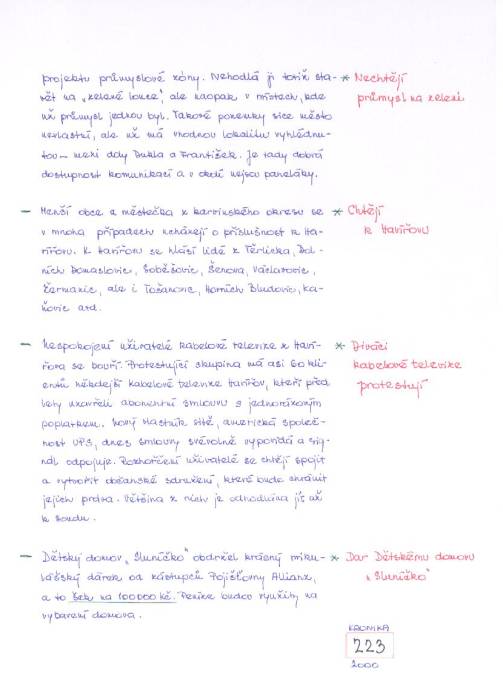 projektu průmyslové zóny. Nehodlá ji totiž sta-
vět na „zelené louce", ale naopak v místech, kde
už průmysl jednou byl. Takové pozemky sice město
nevlastní, ale už má vhodnou lokalitu vyhlédnu-
tou – mezi doly Dukla a František. Je tady dobrá
dostupnost komunikací a v okolí nejsou paneláky.
* Nechtějí
průmysl na zeleni
– Menší obce a městečka z karvinského okresu se
v mnoha případech ucházejí o příslušnost k Ha-
vířovu. K Havířovu se hlásí lidé z Těrlicka, Dol-
ních Domaslovic, Soběšovic, Šenova, Václavovic,
Žermanic, ale i Tošanovic, Horních Bludovic, Ka-
ňovic atd.
* Chtějí
k Havířovu
– Nespokojení uživatelé kabelové televize z Haví-
řova se bouří. Protestující skupina má asi 60 kli-
entů někdejší kabelové televize Havířov, kteří před
lety uzavřeli abonentní smlouvu s jednorázovým
poplatkem. Nový vlastník sítě, americká společ-
nost UPS, dnes smlouvy svévolně vypovídá a sig-
nál odpojuje. Rozhořčení uživatelé se chtějí spojit
a vytvořit občanské sdružení, které bude chránit
jejich práva. Většina z nich je odhodlána jít až
k soudu.
* Diváci
kabelové televize
protestují
– Dětský domov „Sluníčko" obdržel krásný miku-
lášský dárek od zástupců Pojišťovny Allianz,
a to šek na 100 000 kč. Peníze budou využity na
vybavení domova.
* Dar Dětskému domovu
„Sluníčko"
KRONIKA
223
2000